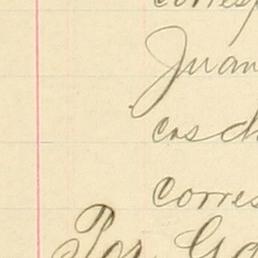 corresp
Juan
cas ch
corres
Por Go